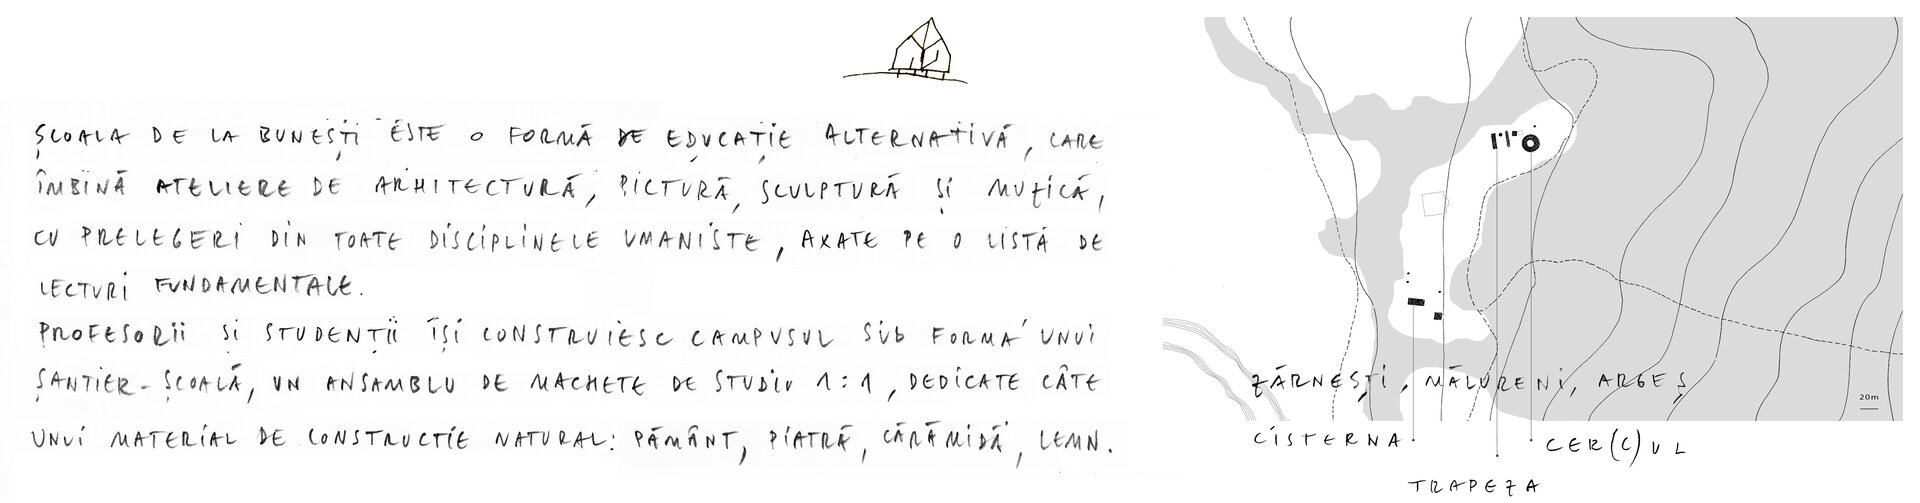 ȘCOALA DE LA BUNEȘTI ESTE O FORMĂ DE EDUCAȚIE ALTERNATIVĂ, CARE
ÎMBINĂ ATELIERE DE ARHITECTURĂ, PICTURĂ, SCULPTURĂ ȘI MUZICĂ,
CU PRELEGERI DIN TOATE DISCIPLINELE UMANISTE, AXATE PE O LISTĂ DE
LECTURI FUNDAMENTALE.
PROFESORII ȘI STUDENȚII ÎȘI CONSTRUIESC CAMPUSUL SUB FORMA UNUI
ȘANTIER-ȘCOALĂ, UN ANSAMBLU DE MACHETE DE STUDIU 1:1, DEDICATE CÂTE
UNUI MATERIAL DE CONSTRUCTIE NATURAL: PĂMÂNT, PIATRĂ, CĂRĂMIDĂ, LEMN.
ZĂRNEȘTI, MĂLURENI, ARGEȘ
20m
CISTERNA
CER(C)UL
TRAPEZA